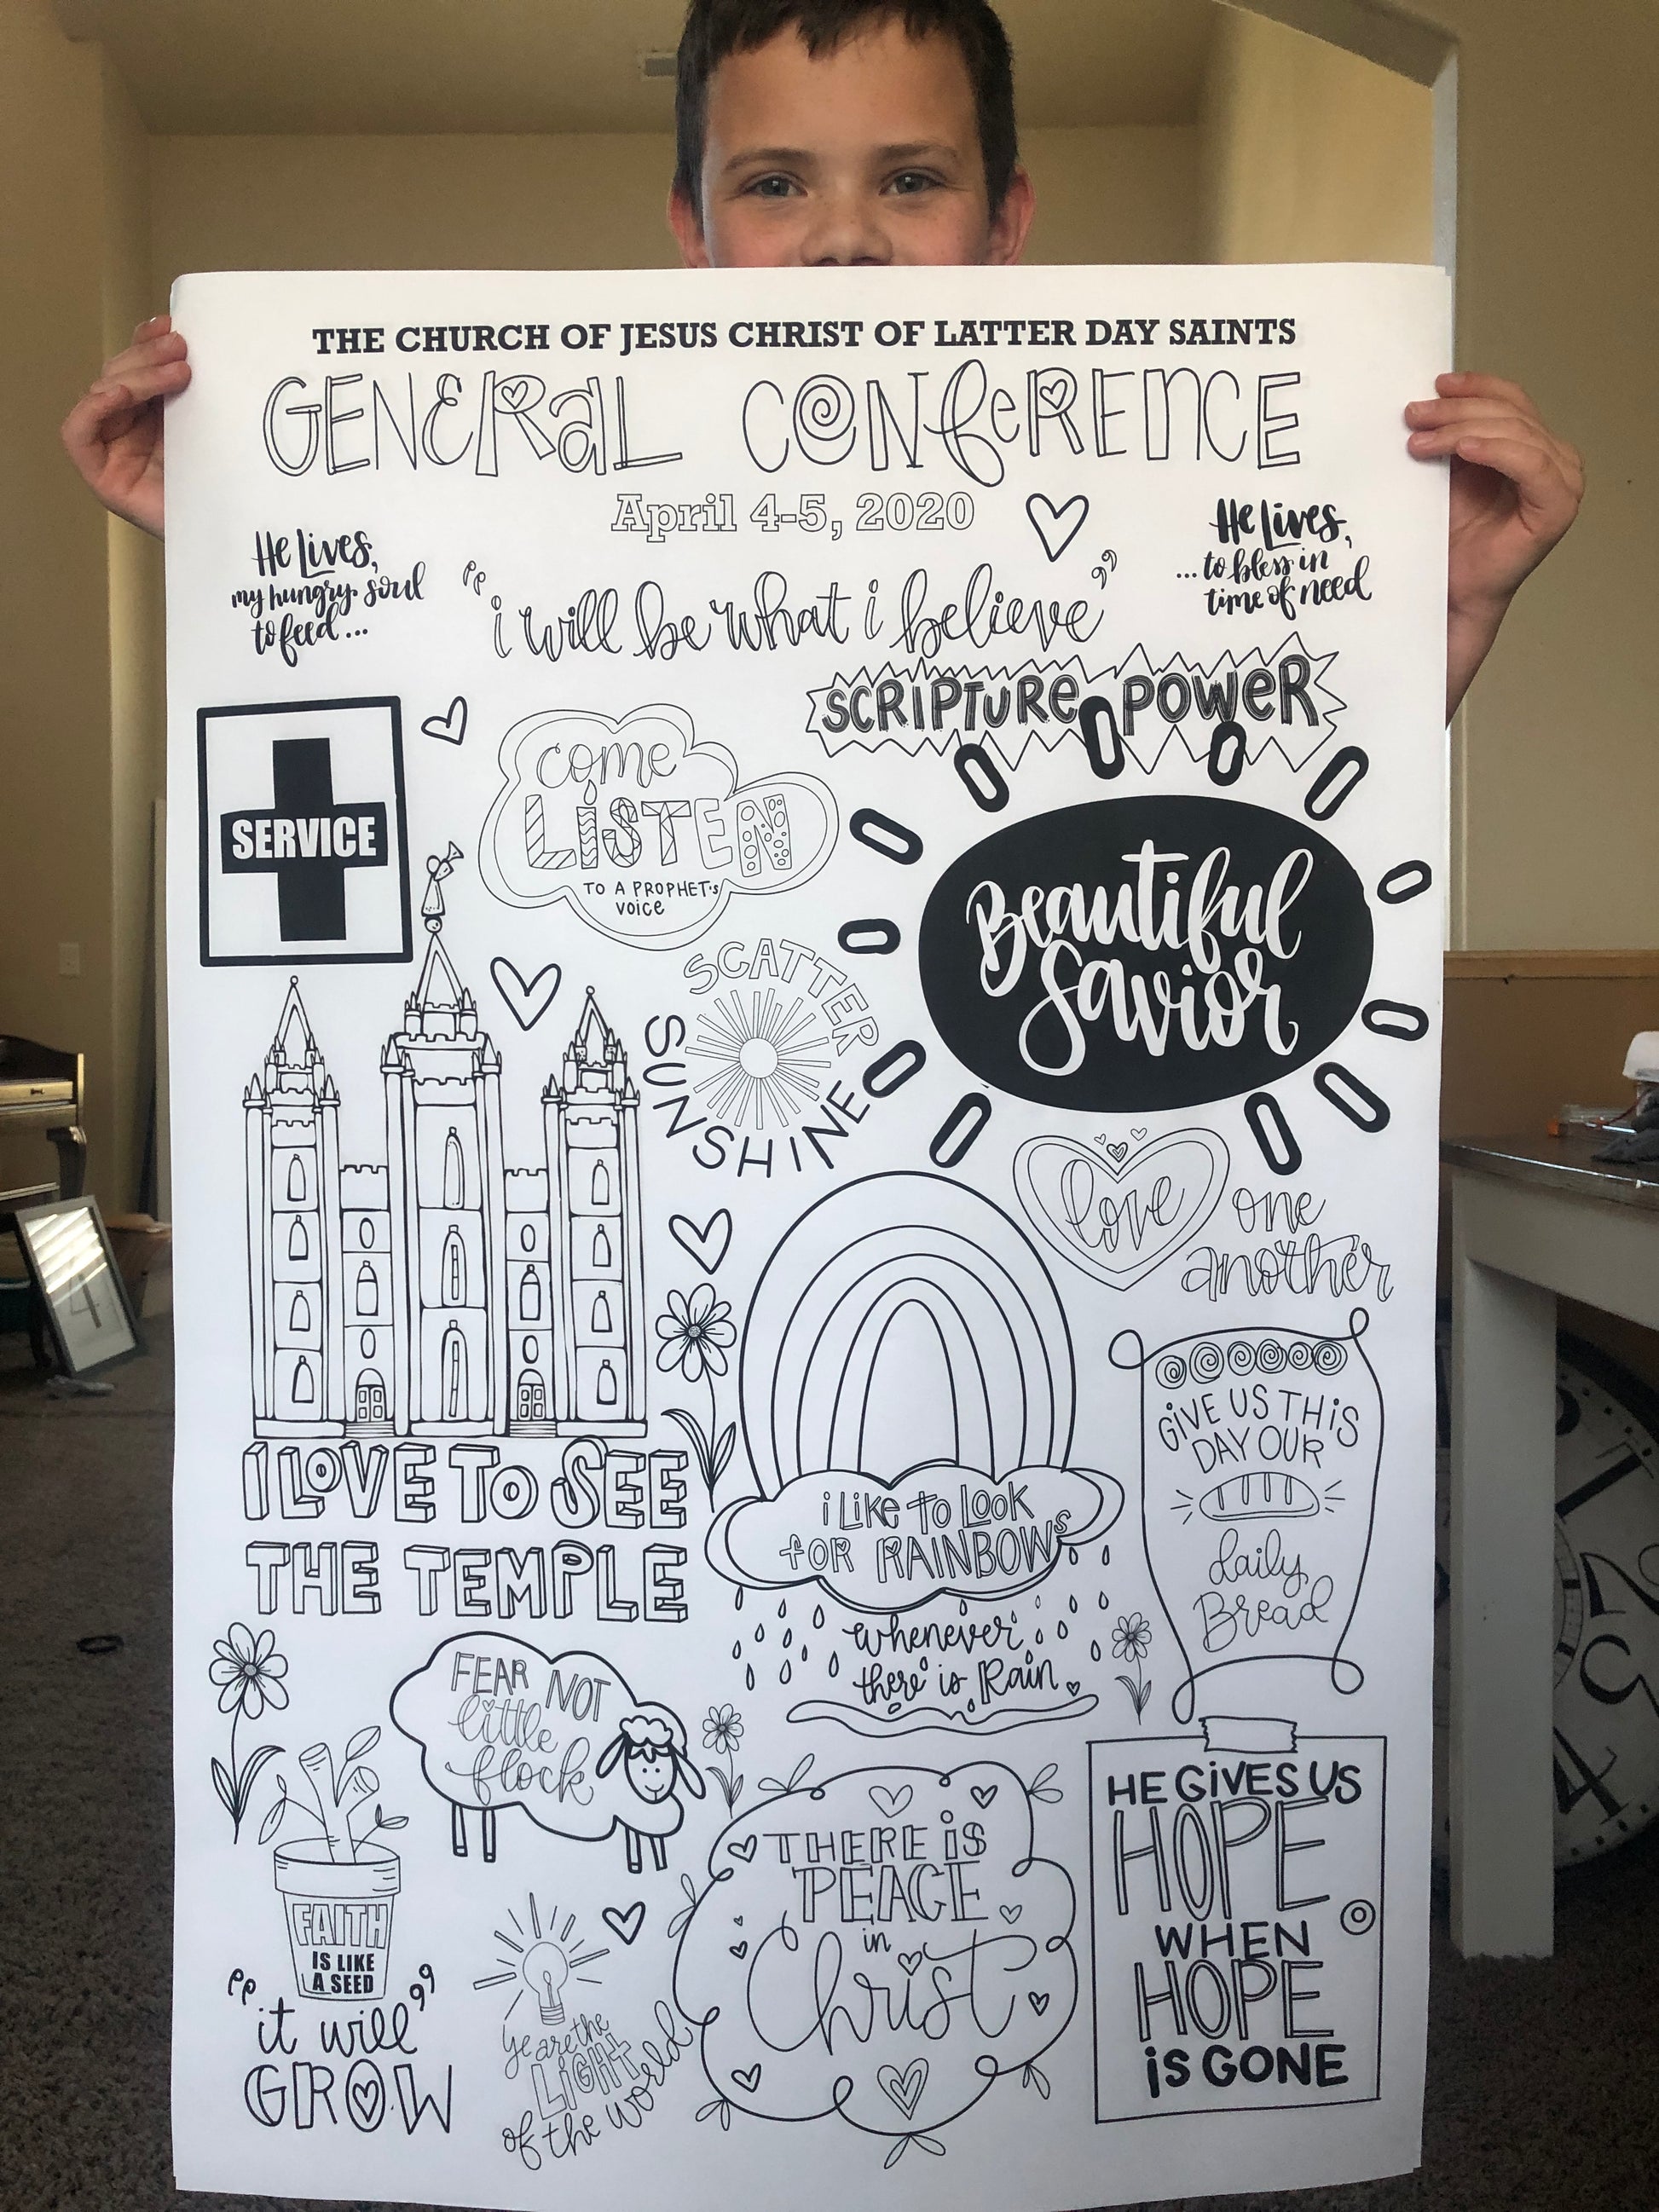 THE CHURCH OF JESUS CHRIST OF LATTER DAY SAINTS
GENERAL CONFERENCE
April 4-5, 2020
He Lives,
my hungry soul
to feed...
"i will be what i believe"
He Lives,
...to bless in
time of need
SCRIPTURE POWER
SERVICE
come
LiSTEN
TO A PROPHET'S
VOICE
Beautiful
Savior
SCATTER
SUNSHINE
love one
another
I LOVE TO SEE
THE TEMPLE
i Like to Look
foR RAINBOWs
whenever
there is Rain
GIVE US THiS
DAY OUR
daily
Bread
FEAR NOT
little
flock
FAITH
IS LIKE
A SEED
"it will"
GROW
ye are the
LiGHt
of the world
THERE iS
PEACE
in
Christ
HE GiVES US
HOPE
WHEN
HOPE
iS GONE